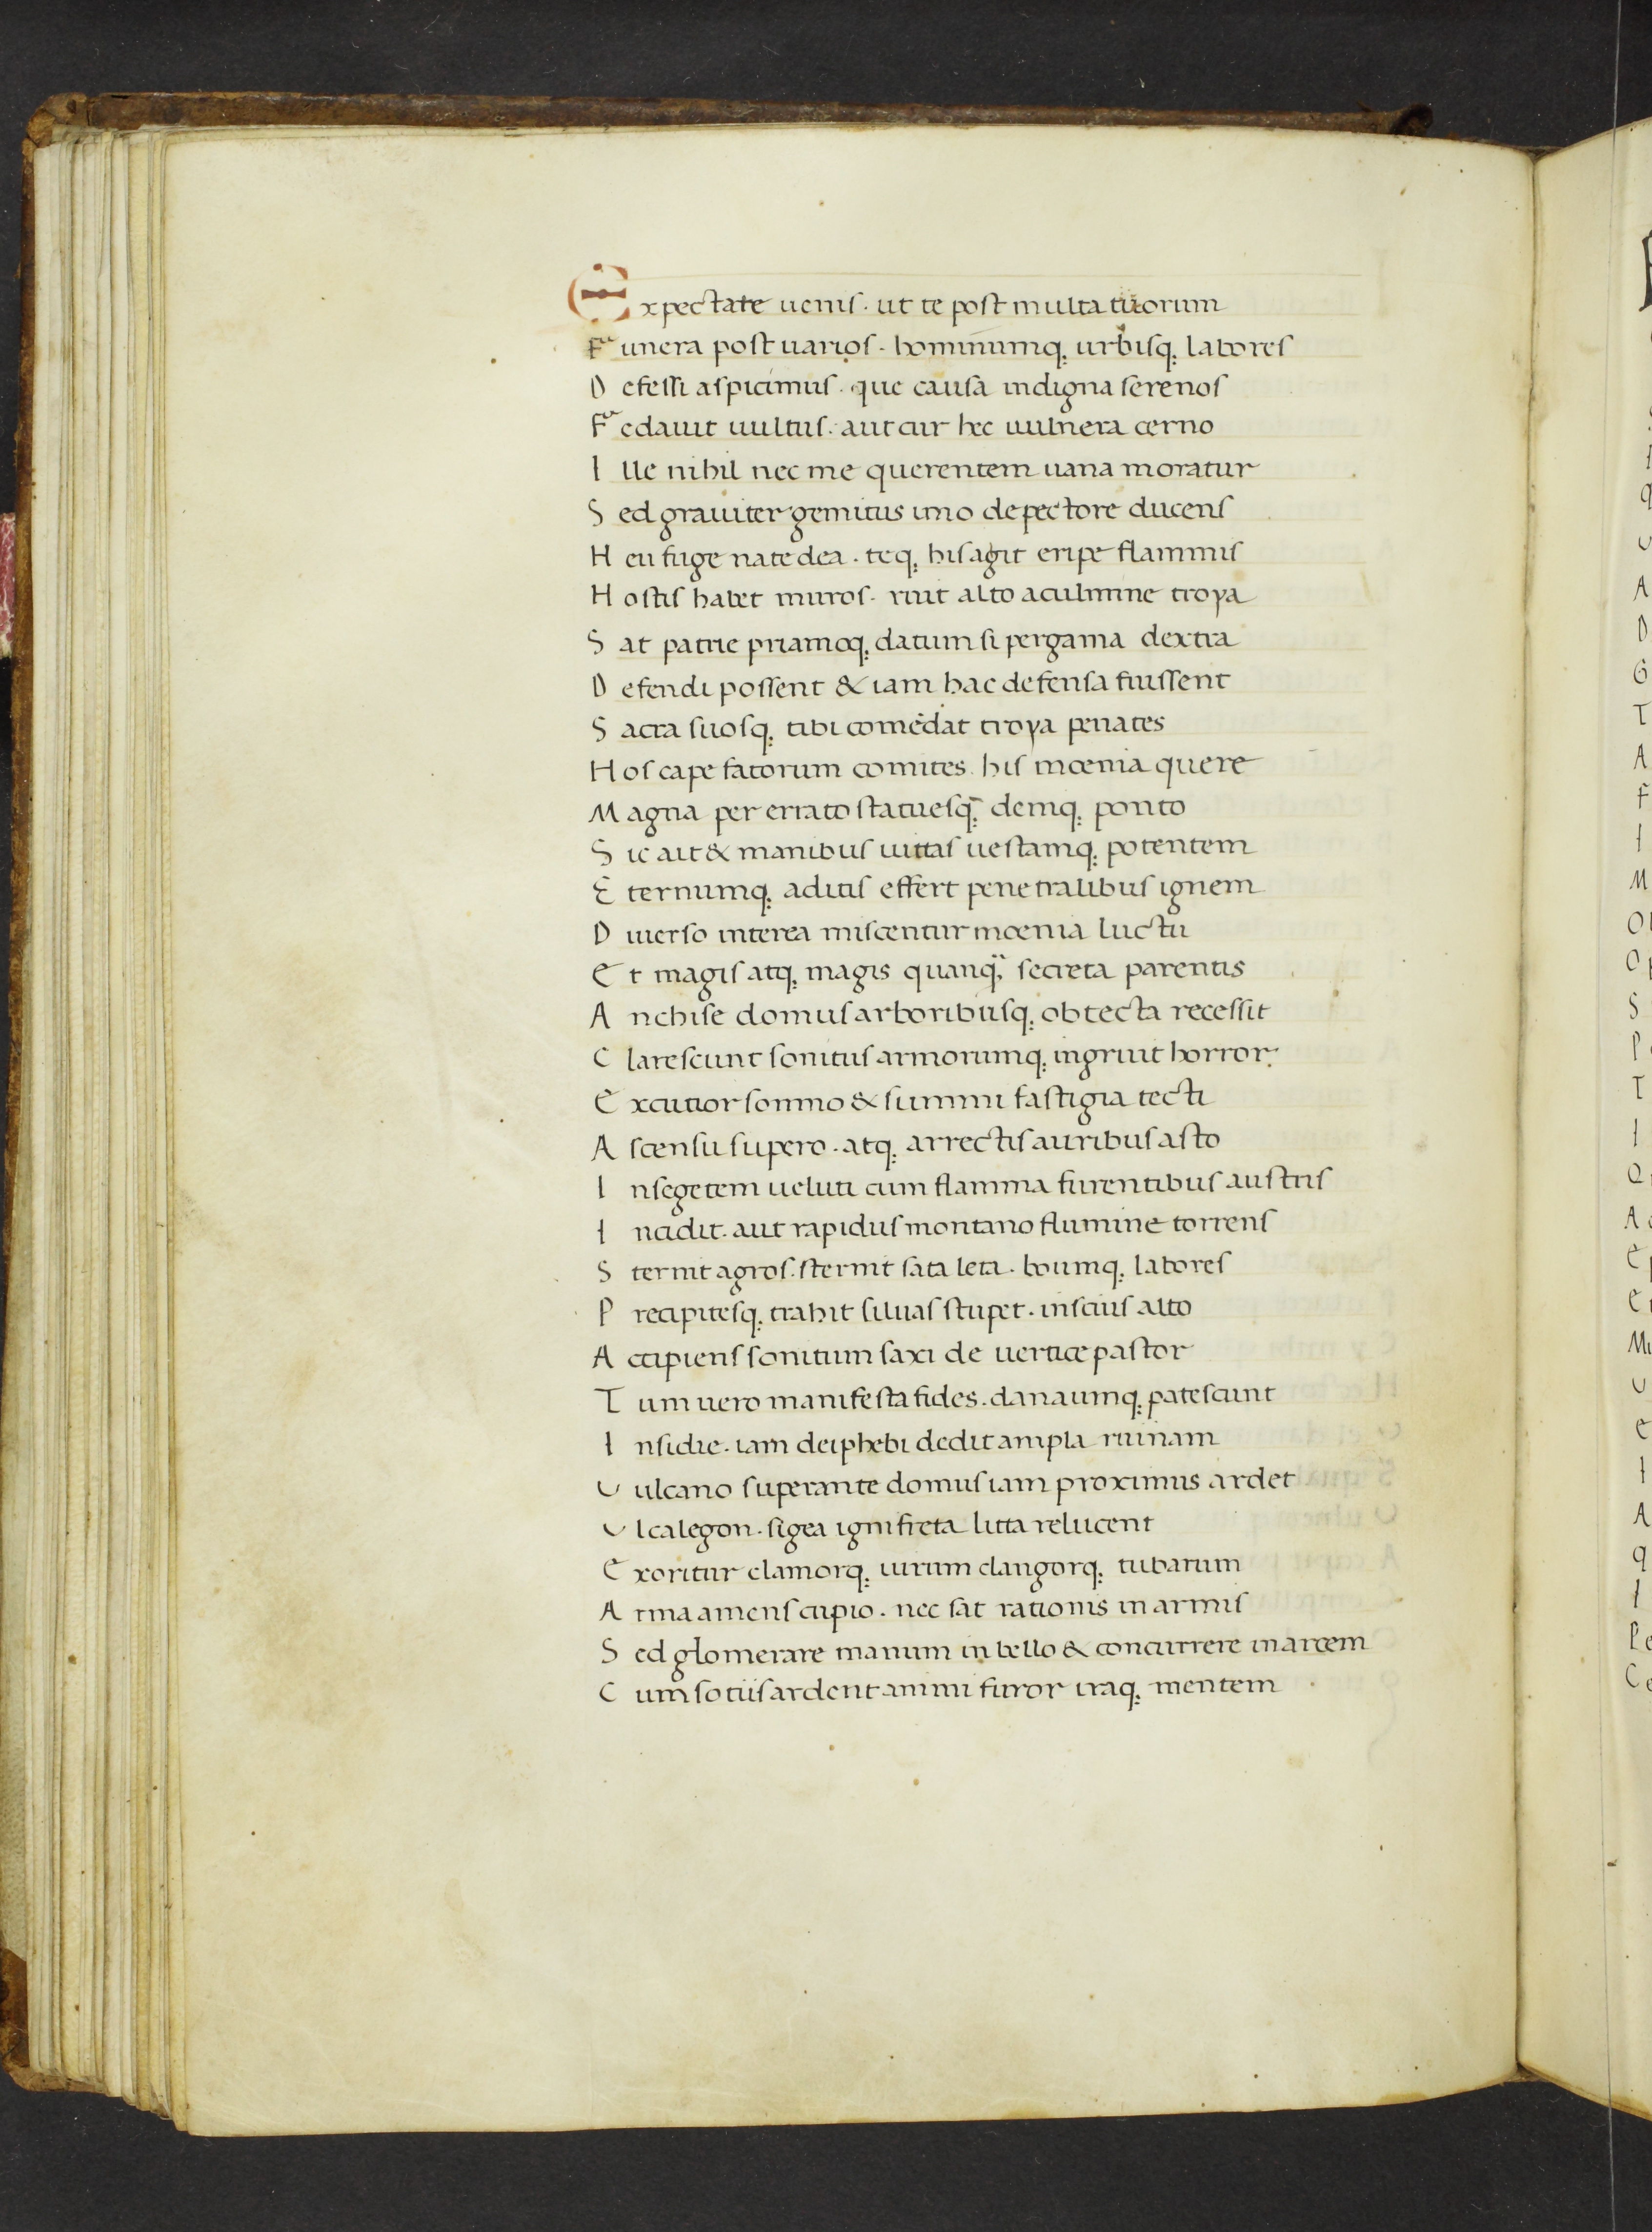 Expectate uenis. ut te post multa tuorum
Funera post uarios. hominumq; urbisq; labores
Defessi aspicimus. que causa indigna serenos
Fedauit uultus. aut cur hec uulnera cerno
Ille nihil nec me querentem uana moratur
Sed grauiter gemitus imo de pectore ducens
Heu fuge nate dea. teq; his agit eripe flammis
Hostis habet muros. ruit alto a culmine troya
Sat patrie priamoq; datum si pergama dextra
Defendi possent & iam hac defensa fuissent
Sacra suosq; tibi comēdat troya penates
Hos cape fatorum comites. his moenia quere
Magna per errato statuesq̄; demq; ponto
Sic ait & manibus uittas uestamq; potentem
Eternumq; aditis effert penetralibus ignem
Diuerso interea miscentur moenia luctu
Et magis atq; magis quanq̄; secreta parentis
Anchise domus arboribusq; obtecta recessit
Clarescunt sonitus armorumq; ingruit horror
Excutior somno & summi fastigia tecti
Ascensu supero. atq; arrectis auribus asto
In segetem ueluti cum flamma furentibus austris
Incidit. aut rapidus montano flumine torrens
Sternit agros. sternit sata leta. boumq; labores
Precipitesq; trahit siluas stupet. inscius alto
Accipiens sonitum saxi de uertice pastor
Tum uero manifesta fides. danaumq; patescunt
Insidie. iam deiphebi dedit ampla ruinam
Uulcano superante domus iam proximus ardet
Ulcalegon. sigea igni freta litta relucent
Exoritur clamorq; uirum clangorq; tubarum
Arma amens cupio. nec sat rationis in armis
Sed glomerare manum in bello & concurrere in arcem
Cum sotiis ardent animi furor iraq; mentem